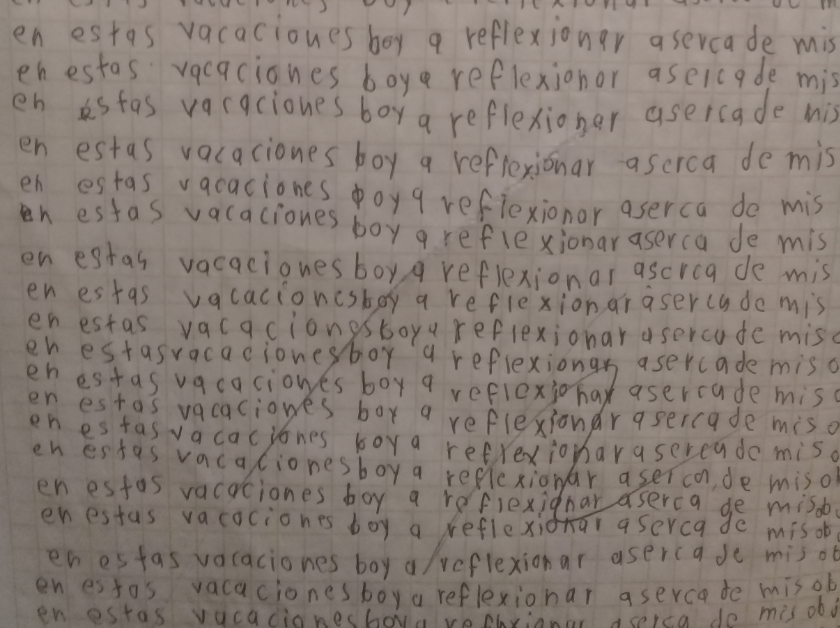 en estas vacaciones boy a reflexionar aserca de mis
en estas vacaciones boy a reflexionar aserca de mis
en estas vacaciones boy a reflexionar aserca de mis
en estas vacaciones boy a reflexionar aserca de mis
en estas vacaciones boy a reflexionar aserca de mis
en estas vacaciones boy a reflexionar aserca de mis
en estas vacaciones boy a reflexionar aserca de mis
en estas vacaciones boy a reflexionar aserca de mis
en estas vacaciones boy a reflexionar aserca de mis
en estas vacaciones boy a reflexionar aserca de mis o
en estas vacaciones boy a reflexionar aserca de mis o
en estas vacaciones boy a reflexionar aserca de mis o
en estas vacaciones boy a reflexionar aserca de mis o
en estas vacaciones boy a reflexionar aserca de mis o
en estas vacaciones boy a reflexionar aserca de mis ob
en estas vacaciones boy a reflexionar aserca de mis ob
en estas vacaciones boy a reflexionar aserca de mis ob
en estas vacaciones boy a reflexionar aserca de mis ob
en estas vacaciones boy a reflexionar aserca de mis obj